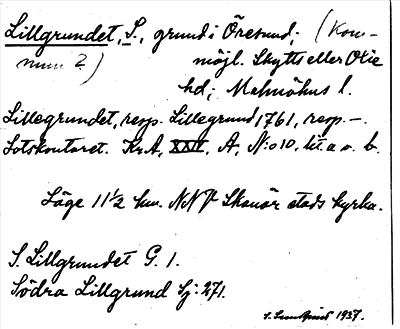 Lillgrundet, S., grund i Öresund; (Kom-
mun?) möjl. Skytts eller Oxie
hd; Malmöhus l.
Lillegrundet, resp. Lillegrund 1761, resp. –.
Lotskontoret. KrA, XXV, A, N:o 10, lit a o. b.
Läge 11 1/2 km. NNV Skanör stads kyrka.
S. Lillgrundet G. 1.
Södra Lillgrund Sj: 271.
S. Lundquist 1937.